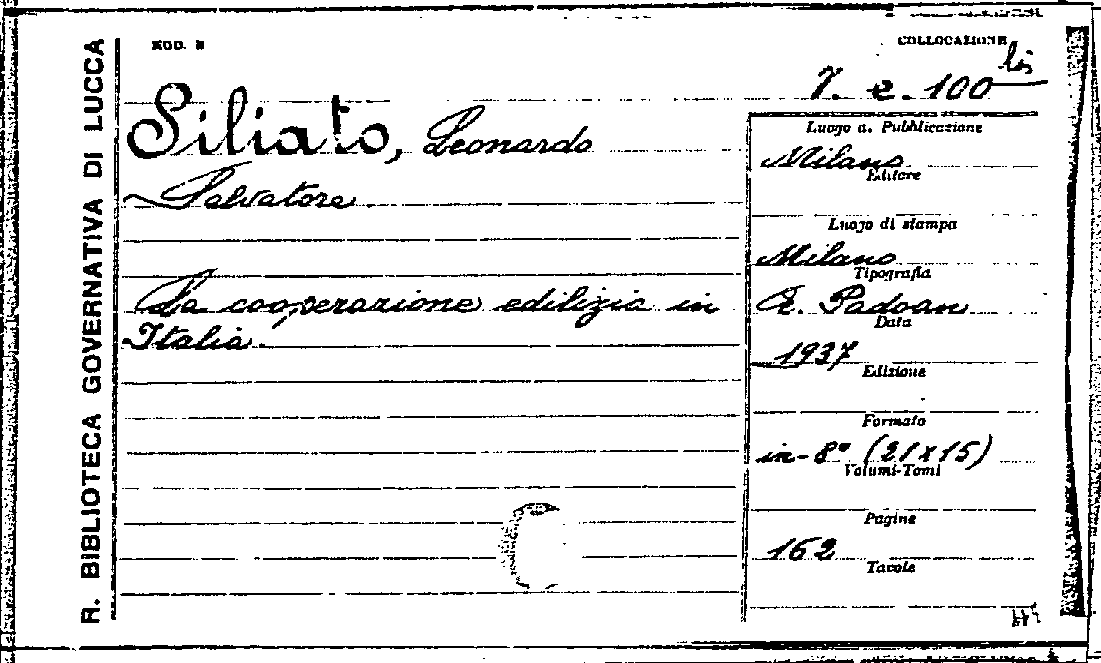 R. BIBLIOTECA GOVERNATIVA DI LUCCA
MOD. N
COLLOCAZIONE
7. e. 100 bis
Siliato, Leonardo
Salvatore
La cooperazione edilizia in
Italia.
Luogo d. Pubblicazione
Milano
Editore
Luogo di stampa
Milano
Tipografia
E. Padoan
Data
1937
Edizione
Formato
in-8° (21x15)
Volumi-Tomi
Pagine
162
Tavole